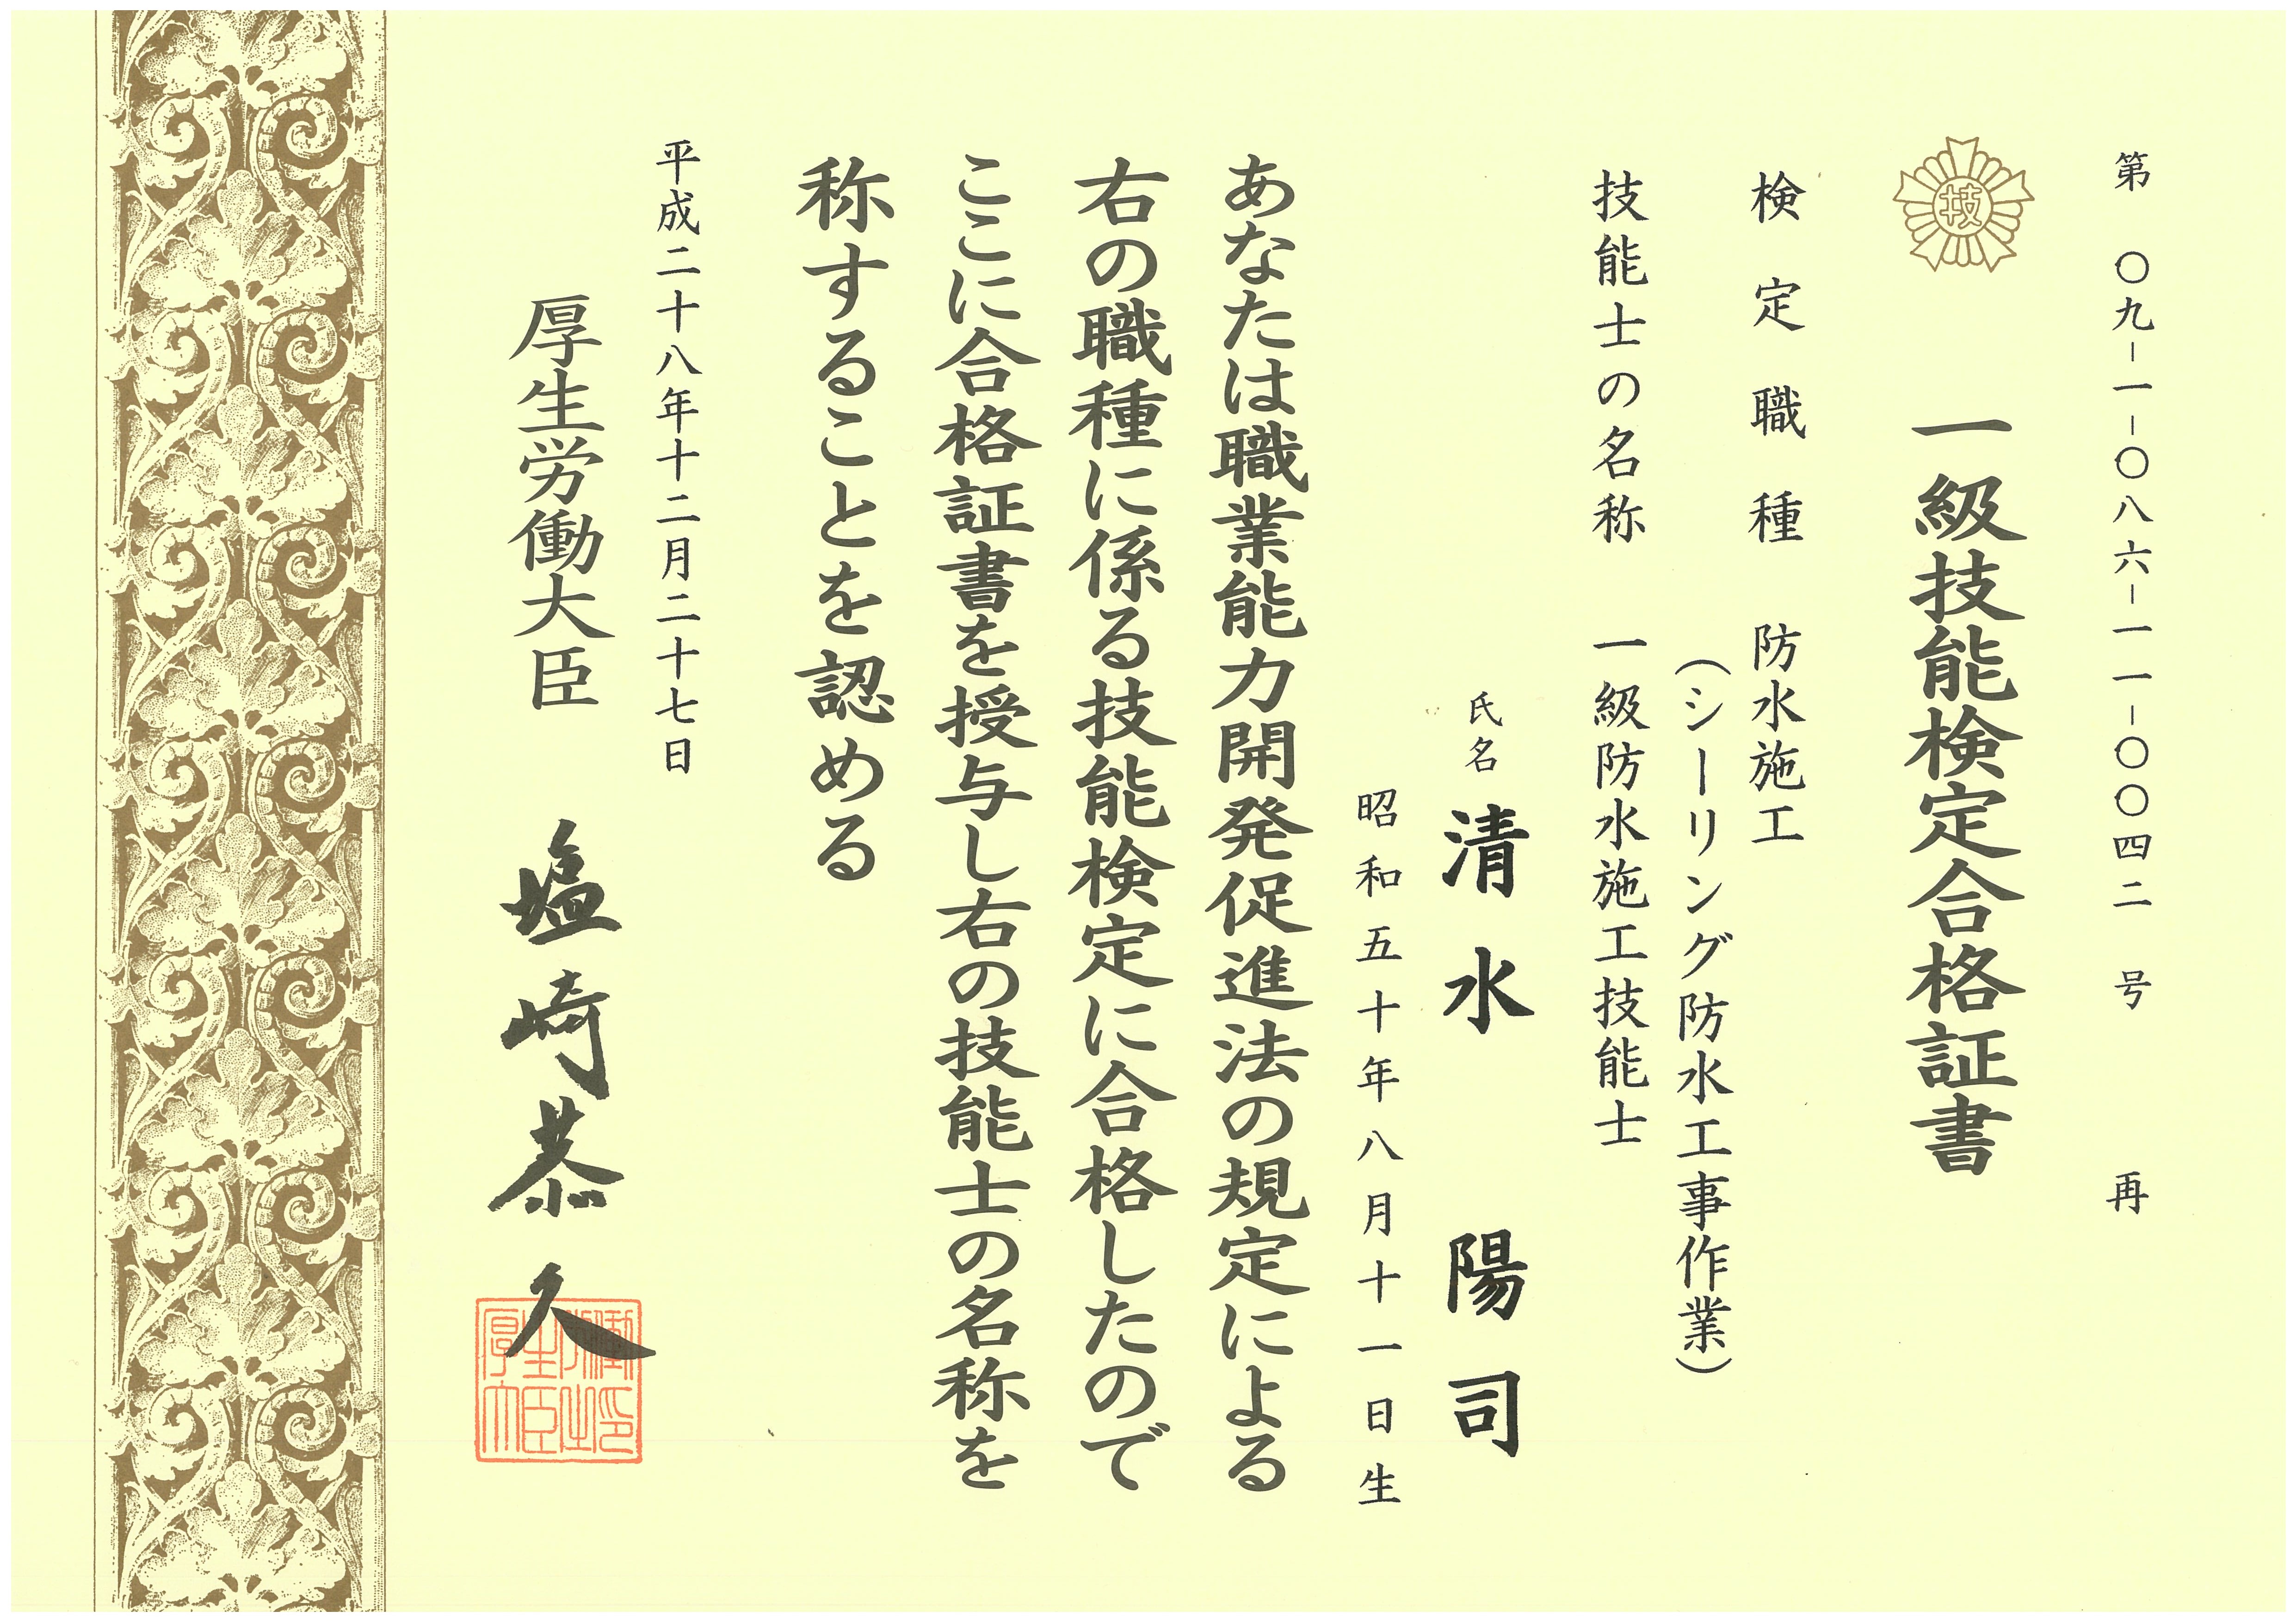 第　〇九－一－〇八六－一一－〇〇四二　号　再
技
一級技能検定合格証書
検定職種　防水施工
（シーリング防水工事作業）
技能士の名称　一級防水施工技能士
氏名　清水　陽司
昭和五十年八月十一日生
あなたは職業能力開発促進法の規定による
右の職種に係る技能検定に合格したので
ここに合格証書を授与し右の技能士の名称を
称することを認める
平成二十八年十二月二十七日
厚生労働大臣　塩崎恭久
厚生労働大臣之印